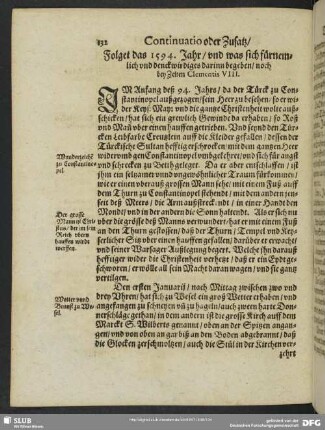 132 Continuatio oder Zusatz/
Folget das 1594. Jahr/ vnd was sich fürnem-
lich vnd denckwürdiges darinn begeben/ noch
bey Zeiten Clementis VIII.
IM Anfang deß 94. Jahrs/ da der Türck zu Con-
stantinopel außgezogen/ sein Heer zu besehen/ so er wi-
der Keys. May. vnd die gantze Christenheit wolte auß-
schicken/ hat sich ein grewlich Gewinde da erhaben/ so Roß
vnd Mañ vber einen hauffen getrieben. Vnd seynd den Tür-
cken Leibfarbe Creutzlein auff die Kleider gefallen/ dessen der
Türckische Sultan hefftig erschrocken mit dem gantzen Heer
widerumb gen Constantinopel vmbgekehret/ vnd sich für angst
vnd schrecken zu Beth gelegt. Da er aber entschlaffen/ ist
jhm ein seltzamer vnnd vngewöhnlicher Traum fürkommen/
wie er einen vberauß grossen Mann sehe/ mit einem Fuß auff
dem Thurn zu Constantinopel stehend/ mit dem andern jen-
seit deß Meers/ die Arm außstreckend/ in einer Hand den
Mond/ vnd in der andern die Sonn haltende. Als er sich nu
vber die grösse deß Manns verwundert/ hat er mit einem Fuß
an den Thurn gestossen/ daß der Thurn/ Tempel vnd Key-
serlicher Sitz vber einen hauffen gefallen/ darüber er erwacht/
vnd seiner Warsager Außlegung begert. Welche jhn darauß
hefftiger wider die Christenheit verhetzt/ daß er ein Eydt ge-
schworen/ er wölle all sein Macht daran wagen/ vnd sie gantz
vertilgen.
Den ersten Januarij/ nach Mittag zwischen zwo vnd
drey Vhren/ hat sich zu Wesel ein groß Wetter erhaben/ vnd
angefangen zu schneyen vñ zu hageln/ auch zween harte Don-
nerschläge gethan/ in dem andern ist die grosse Kirch auff dem
Marckt S. Wilberts genannt/ oben an der Spitzen angan-
gen/ vnd von oben an gar biß an den Boden abgebrannt/ daß
die Glocken zerschmoltzen/ auch die Stül in der Kirchen ver-
zehrt
Wunderzeichẽ
zu Constantino-
pel.
Der grosse
Wetter vnnd
Brunst zu We-
sel.
SLUB
Wir führen Wissen.
gefördert von der
DFG
Deutsche Forschungsgemeinschaft